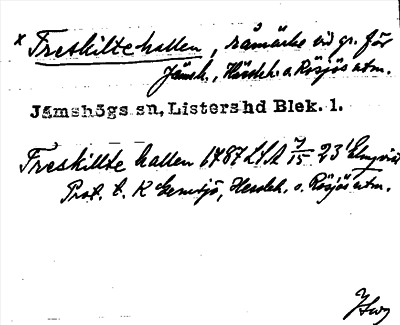 x Treskiltehallen, råmärke vid gr. för
Jämsh., Härdeh. o. Rösjös utm.
Jämshögs sn, Listershd Blek. l.
Treskillte hallen 1787 LSA 7/15 23
Prot. t. K Gemsjö, Herdeh. o. Rösjös utm.